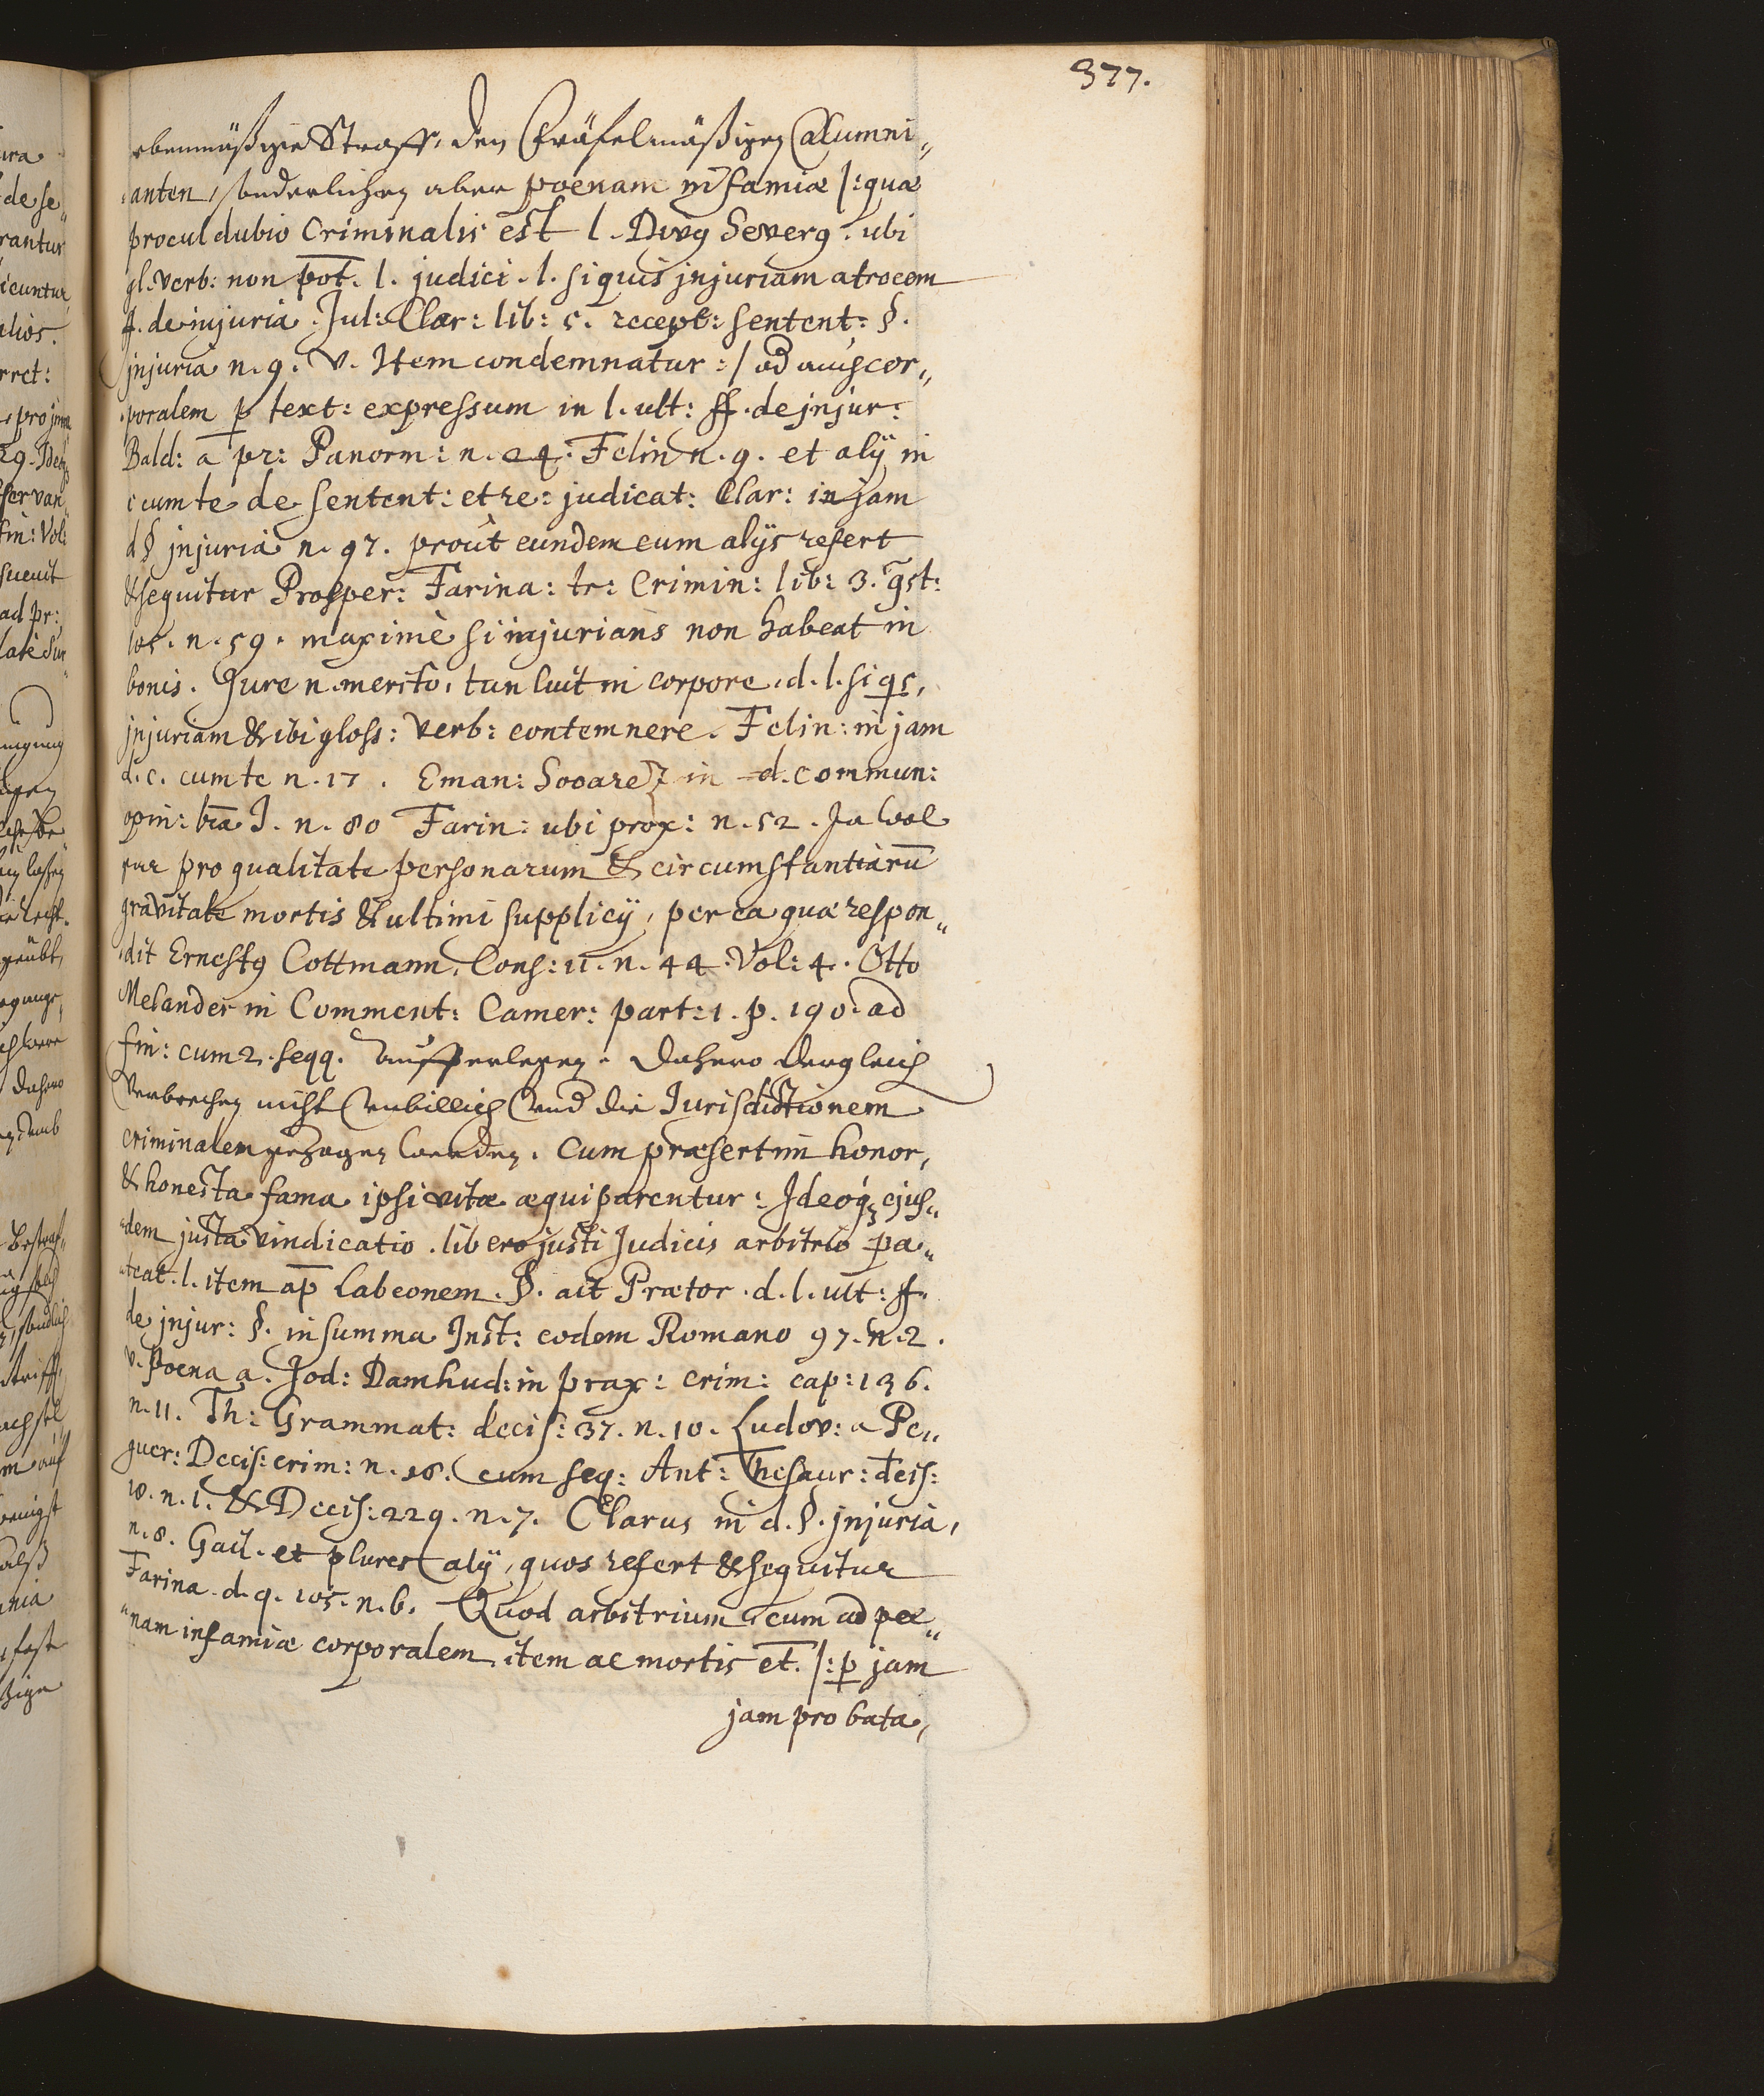 377.
ebenmäßige Straff, den Fräfelmäßigen Calumni„
anten, sonderlichen aber poenam infamiæ /: quæ
procul dubio Criminalis est l. Divus Severus. ubi
gl. verb: non pot. l. judici. l. si quis injuriam atrocem
ff. de injuria. Jul: Clar: lib: 5. recept: sentent: §.
injuria n. 9. v. Item condemnatur :/ od auch cor„
poralem p text: expressum in l. ult: ff. de injur:
Bald: a pr: Panorm: n. 24. Felin n. 9. et alij in
c cum te de sentent: et re: judicat: Clar: in jam
d § injuria n. 97. prout eundem cum alijs refert
& sequitur Prosper: Farina: tr: Crimin: lib: 3. qst:
105. n. 59. maximè si injurians non habeat in
bonis. Jure n. merito, tun luit in corpore. d. l. si qs,
injuriam & ibi gloss: verb: contemnere. Felin: in jam
d. c. cum te n. 17. Eman: Sooarez in d. commun:
opin: lra J. n. 80 Farin: ubi prox: n. 52. Ja wol
gar pro qualitate personarum & circumstantiarū
gravitate mortis & ultimi supplicij, per ea quæ respon„
dit Ernestus Cottmann. Cons: 11. n. 44. Vol: 4. Otto
Melander in Comment: Camer: part: 1. p. 190. ad
fin: cum 2. seqq. aufferlegen. Dahero dergleich
Verbrechen nicht unbillich und die Jurisdictionem
criminalem gezogen werden. Cum præsertim honor,
& honesta fama ipsi vitæ æquiparentur: Ideoq ejus„
dem justa vindicatio. libero justi Judicis arbitrio pa„
teat. l. item ap Labeonem. §. ait Prætor. d. l. ult: ff.
de injur: §. in summa Inst: eodem Romano 97. n. 2.
v. Poena a. Jod: Damhud: in prax: crim: cap: 136.
n. 11. Th: Grammat: decis: 37. n. 10. Ludov: a Pe„
guer: Decis: crim: n. 28. cum seq: Ant: Thesaur: deis:
10. n. 1. & Decis: 229. n. 7. Clarus in d. §. injuria,
n. 8. Gail. et plures alij, quos refert & sequitur
Farina. d. q. 105. n. 6. Quod arbitrium cum ad poe„
nam infamiæ corporalem, item ac mortis et. /: p jam
jam probata,